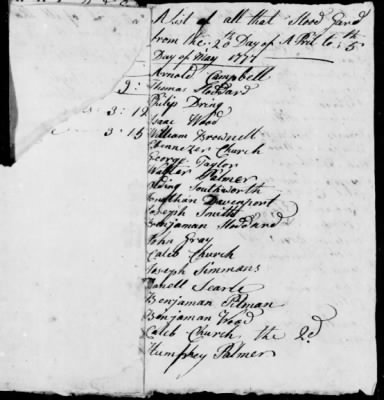 A list of all that Stood Gard
from the 20th Day of APril to 5th
Day of May 1777
Arnold Campbell
9: Thomas Stoddard
Philip Dring
3:19 Isaac Wood
3:15 William Brownell
Ebenezer Church
George Taylor
Walter Palmer
Southworth
Jonathan Davenport
Joseph Smith
Benjaman Stoddard
John Gray
Caleb Church
Joseph Simmans
Daniell Searle
Benjaman Pitman
Benjaman Wood
Caleb Church the 2d
Humphey Palmer